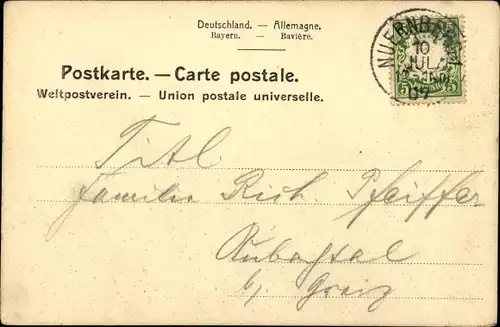 Deutschland. — Allemagne.
Bayern. — Bavière.
Postkarte. — Carte postale.
Weltpostverein. — Union postale universelle.
NUERNBERG
10
JUL
07
5 5
Titl
Familie Rich. Pfeiffer
b/ Greiz